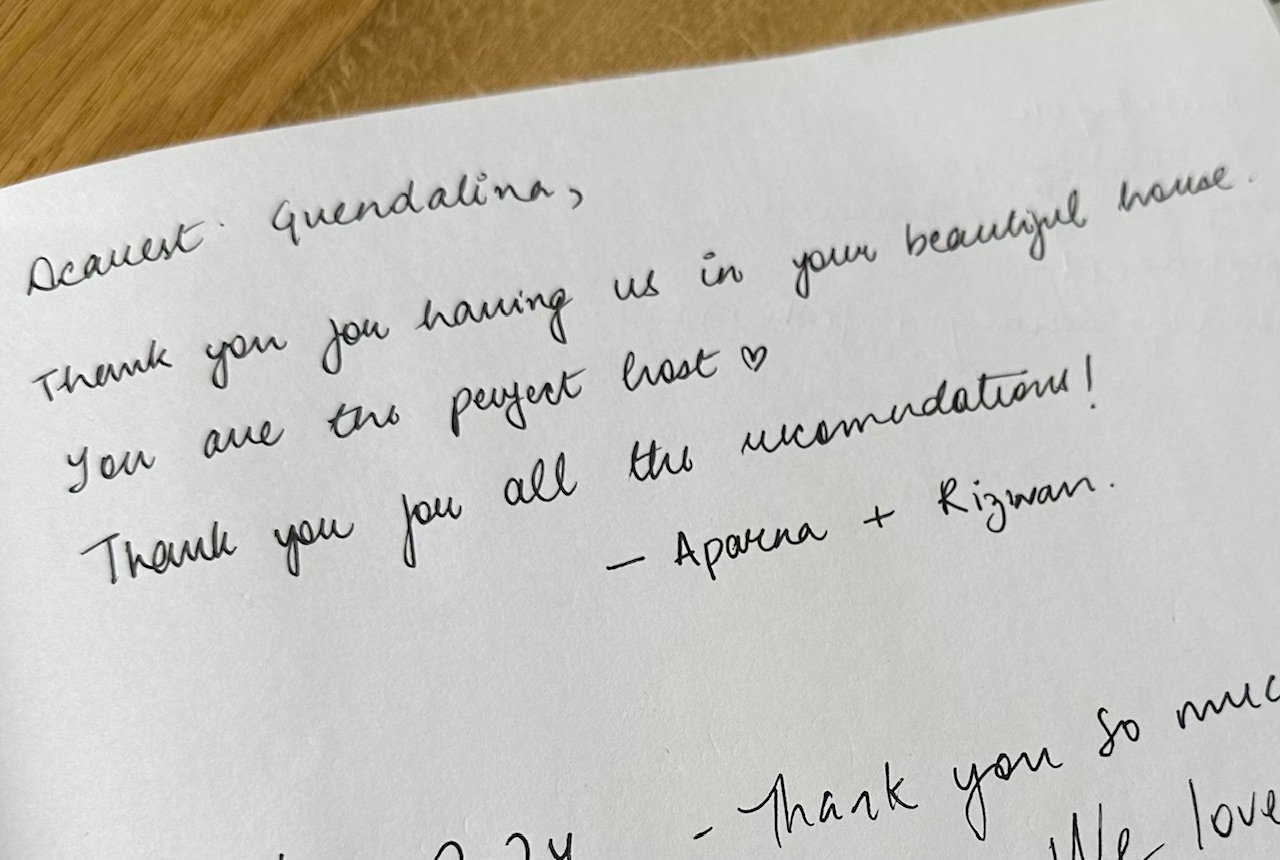 Dearest Guendalina,
Thank you for having us in your beautiful house.
You are the perfect host ♡
Thank you for all the recomendations!
— Aparna + Rizwan.
- Thank you so muc
We love